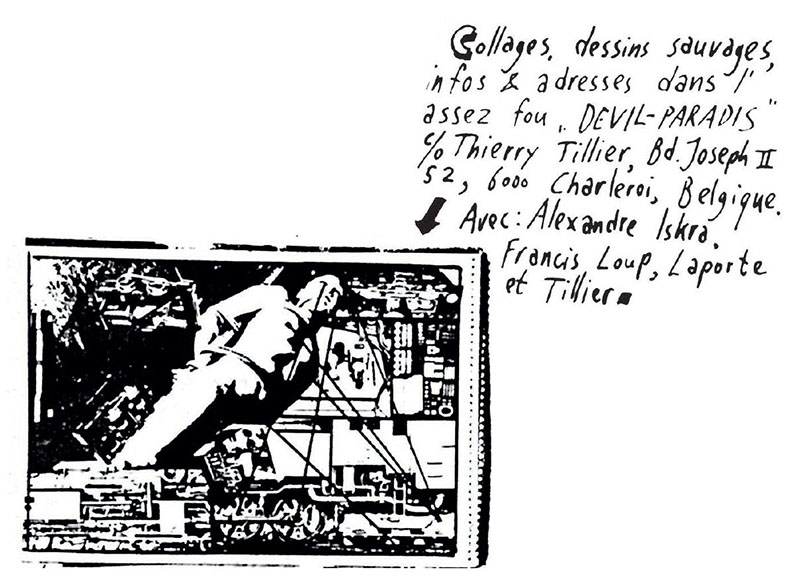 Collages, dessins sauvages,
infos & adresses dans l'
assez fou „DEVIL-PARADIS"
c/o Thierry Tillier, Bd. Joseph II
52, 6000 Charleroi, Belgique.
Avec: Alexandre Iskra,
Francis Loup, Laporte
et Tillier.